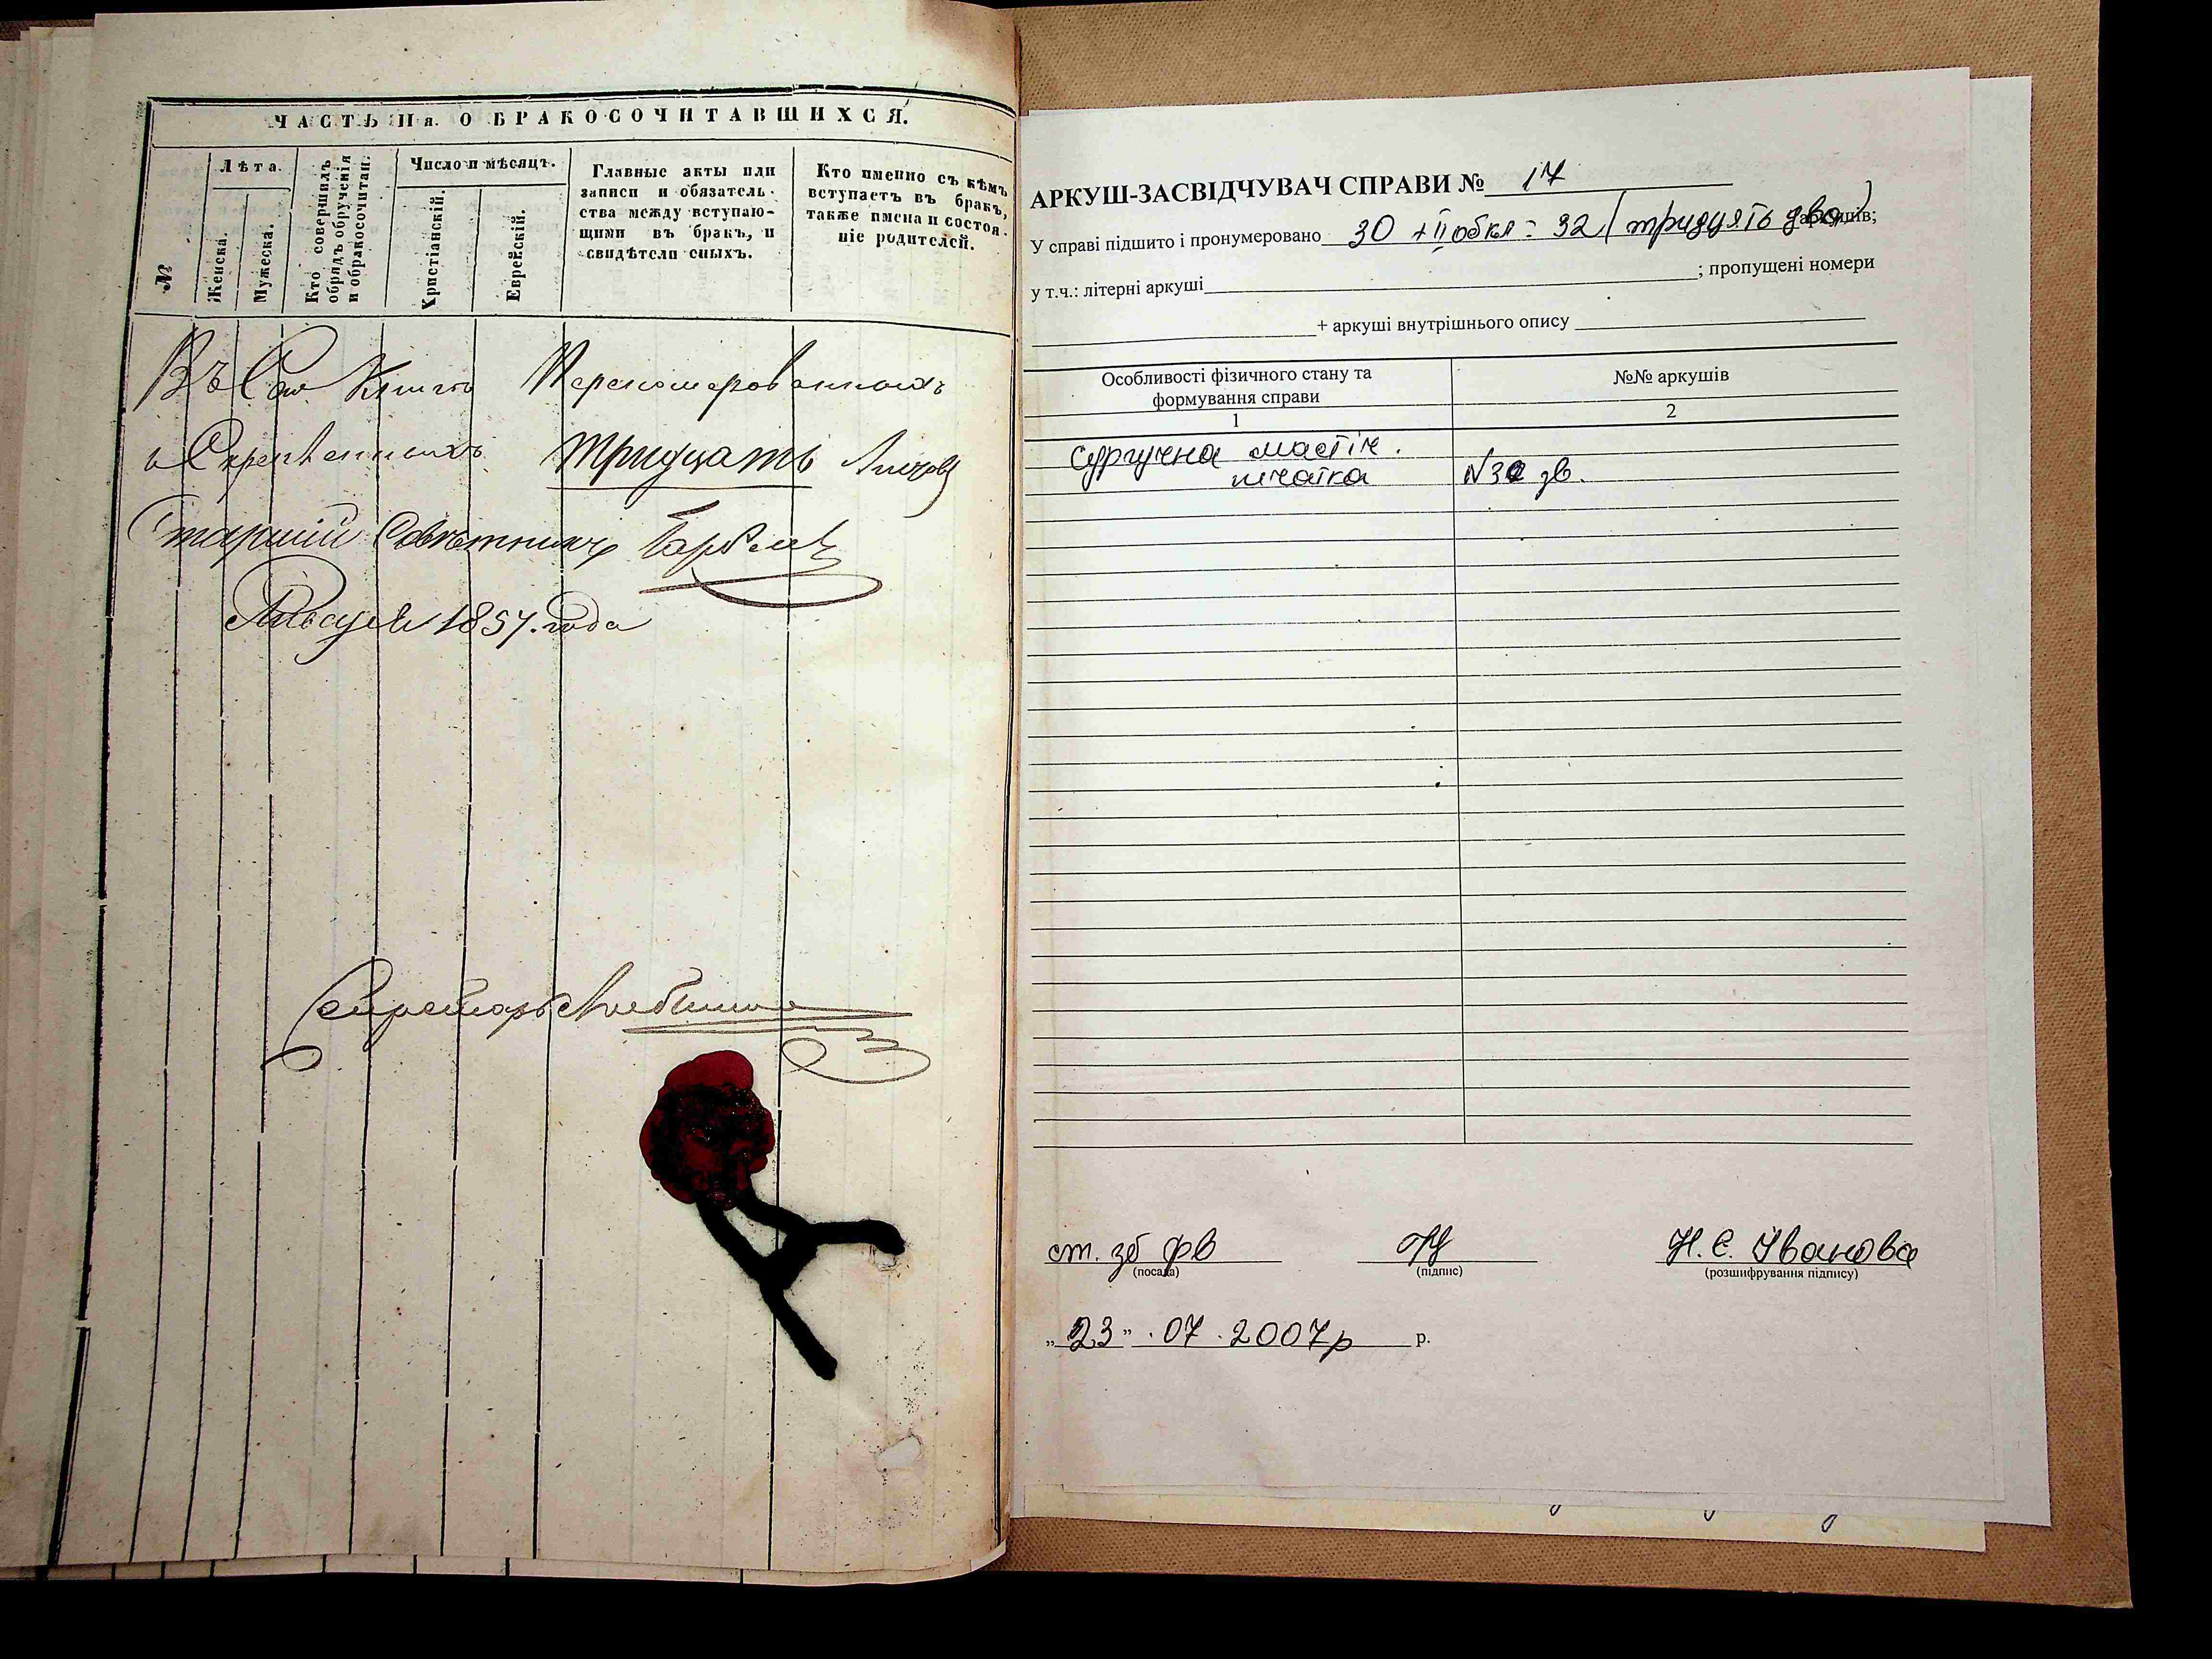 ЧАСТЬ IIя. О БРАКОСОЧИТАВШИХСЯ.
№
Лѣта.
Женска.
Мужеска.
Кто совершилъ
обрядъ обрученія
и обракосочитан.
Число и мѣсяцъ.
Христіанскій.
Еврейскій.
Главные акты или
записи и обязатель-
ства между вступаю-
щими въ бракъ, и
свидѣтели оныхъ.
Кто именно съ кѣмъ
вступаетъ въ бракъ,
также имена и состоя-
ніе родителей.
Въ Сей Книгѣ Перенумерованныхъ
и Скрепленныхъ тридцать Листовъ
Старший Советникъ
1857. года
Секретарь
АРКУШ-ЗАСВІДЧУВАЧ СПРАВИ № 17
У справі підшито і пронумеровано 30 + II обкл = 32 (тридцять два) аркушів;
у т.ч.: літерні аркуші ; пропущені номери
+ аркуші внутрішнього опису
Особливості фізичного стану та
формування справи
№№ аркушів
1
2
сургучна мастич.
печатка N30 зв.
ст. зб фв
Н. Є. Іванова
(посада)
(підпис)
(розшифрування підпису)
„23” .07.2007р р.